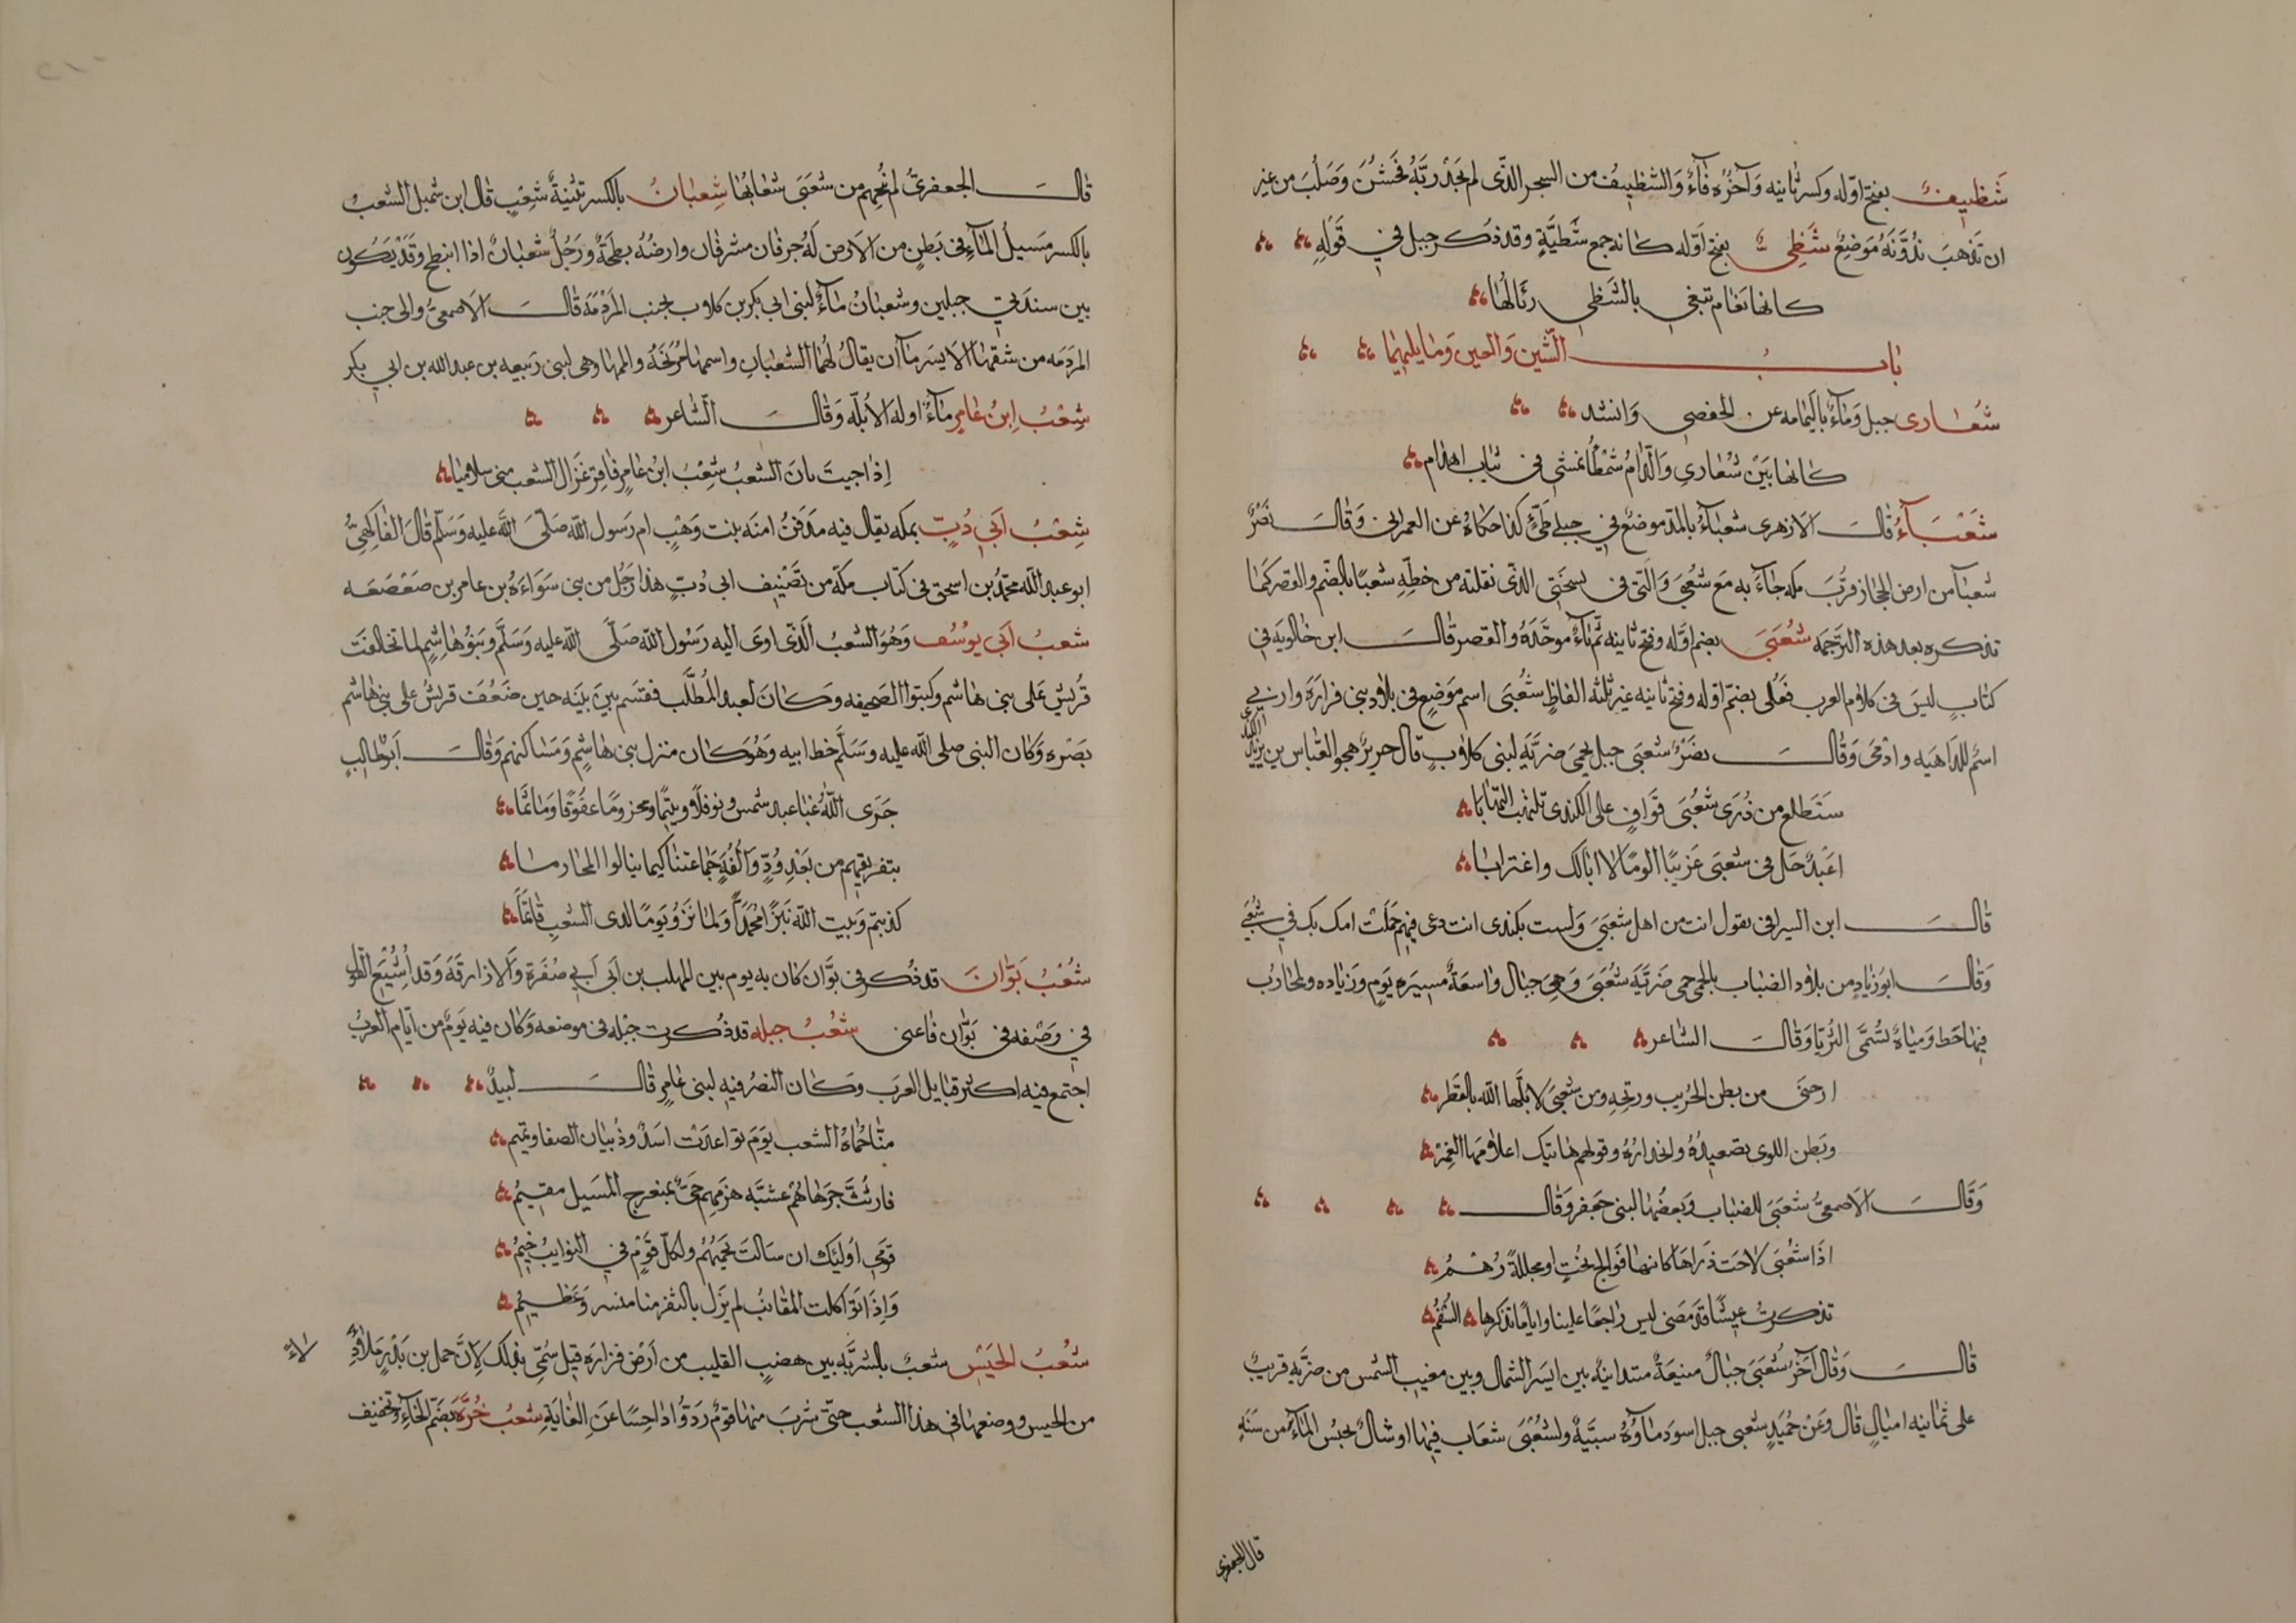 شَظِيفٌ بفتح اوّله وكسر ثانيه وَآخرُه فَآءٌ وَالشظيفُ من الشجر الذّى لم يَجدْ رِيَّهُ فَخَشُنَ وَصَلُبَ من غير
ان تَذهبَ نُدُوَّتَهُ مَوضِعٌ شَظِىٌّ بفتح اَوّله كانه جمع شَظيَّةٍ وقد ذُكر جبل في قَوْلِهِ
كانها نَعَام تبغي بالشَظي رئَالُهَا
بَابُ الشّين وَالعين وَمَا يليهِمَا
شُعَارى جبل وَمَآءٌ باليَمامه عن الحفصي وَانشد
كانها بَيْنَ شُعَارى وَالدَّام شَمْطَآءُ تمشى فى ثياب اهدام
شَعْبَآءُ قالَ الازهرى شعبَآءُ بالمدّ موضعٌ في جبلي طَىّءٍ كذا حكاهُ عن العمرانى وَقالَ نَصْرٌ
شعبَآ من ارض الحجاز قُربَ مكه جَآءَ به مَع شُعبَى وَالّتى فى نسختى الذّى نقلته من خطِّهِ شعبَا بالضّم والقصر كمَا
نذكره بعد هذه الترجمَه شُعَبَى بضم اوّله وفتح ثانيه ثُمّ بَآءٌ موحَّدَةٌ والقصر قالَ ابن خالويَه فى
كتابِ ليسَ فى كلام العرب فُعَلى بضمّ اوّله وفتح ثانيه غير ثلثه الفاظٍ شُعَبَى اسم مَوضِعٍ فى بلاد بنى فزارَةَ وارَبى
اسمٌ للدَاهيَه وادَمَى وَقالَ نصرٌ شعبَى جبل بحِمَى ضريَّةِ لبنى كلابٍ قال جرير يهجو العبّاس بن يزيدَ
الكندى
سَتطلع من ذُرَى شُعَبَى قَوَافٍ على الكندى تلتهب التهَابَا
اعَبْدٌ حَل فى شعبَى غَريبًا الومًا لا ابَالك واغترابَا
قالَ ابن السيرافى يقول انت من اهل شعبَى وَلست بكندى انت دعى فيهم حَمَلَت امك بك في شُعَبَى
وَقالَ ابو زيادٍ من بلاد الضبَاب بالحمى حمى ضَريَّةَ شُعَبَى وَهىَ جبَال وَاسعَةٌ مسيرَة يَومٍ وَزيَاده ولمحَارب
فيهَا خَط وَمياهٌ تُسَمَّى الثُريَّا وَقالَ الشاعر
ارحنَى من بطن الجُريب وريحِهِ ومن شعبَى لا بَلَّهَا الله بالقَطْر
وبَطن اللوى تصعيدُهُ وانحدارُهُ وقولهم هاتيك اعلامهَا الغمرْ
وَقَالَ الاصمعىُّ شعبَى للضبَاب وَبعضُهَا لبنى جعفر وَقالَ
اذَا شُعبَى لاحَت ذرَاهَا كانها فوالجُ بُختٍ او مجللةٌ دُهْمُ
تذكرتُ عيشًا قد مَضى ليس راجعًا علينا وايامًا تذكرها السُّقمُ
قالَ وَقال آخرُ شُعَبَى جبَالٌ منيعَةٌ متدانيَةٌ بين ايسَر الشمال وبين مغيب الشمس من ضريَّه قريبٌ
على ثمَانيه اميَالٍ قال وَعَنْ حُمَيدٍ شعبى جبل اسوَد مَآوُهُ سبيَّةٌ ولشُعَبَى شعَاب فيهَا اوشالٌ تحبسُ المآءَ من سَنَةٍ
قال الجعفرى
قالَ الجعفرىُّ لم يُحجهم من شعَبَى شعَابُهَا شِعبَانُ بالكسر تثنيةُ شِعْبٍ قال ابن شميل الشعبُ
بالكسر مَسيلُ المَآءِ فى بَطنٍ من الارض لَهُ جرفان مشرفان وارضُهُ بطحَةٌ ورَجُلٌ شعبَانٌ اذا انبطح وقَدْ يَكُون
بين سندَىْ جبلين وشعبَانُ مَاءٌ لبنى ابى بكر بن كلاب بجنب المَردَمَه قالَ الاصمعىُّ والى جنب
المردَمَه من شقهَا الايسَر مَآان يقالُ لهُمَا الشعبَانِ واسمهمَا مُرَيخَةُ والممهَا وهى لبنى رَبيعه بن عبد الله بن ابى بكر
شِعْبُ اِبنُ عَامِرٍ مَآءٌ اوله الاُبلّه وَقالَ الشاعر
اِذا جيتَ بَانَ الشعبُ شِعْبُ ابنُ عَامِرٍ فاقرِ غَزال الشعب منى سلامِيَا
شِعْبُ اَبي دُبّ بمكه يقال فيه مَدفَنُ امنَه بنت وَهْبٍ ام رَسول الله صَلّى الله عليه وَسَلّم قالَ الفاكهىُّ
ابو عبد الله محمّدُ بن اسحق فى كتاب مكّة من تَصْنيف ابى دُبٍّ هذا رَجُل من بنى سَوَاءَةَ بن عامر بن صَعْصَعَه
شعبُ اَبي يوُسُف وَهُوَ الشعبُ الّذى اوَى اليه رَسُول الله صَلَّى الله عليه وَسَلَّمَ وبَنوُ هَاشِمٍ لما تحَالفَت
قُريش عَلى بنى هاشم وكتبوا الصَحيفه وَكانَ لعبد المُطَّلب فقسّم بينَ بَنيه حين ضَعُفَ قريشُ على بنى هاشم
بَصَره وَكان النبى صلى الله عليه وَسَلَّم خط ابيه وَهُوَ كان منزل بنى هاشِم وَمَسَاكنهم وَقَالَ اَبوُطالبٍ
جَزَى اللهُ عنا عبد شمس ونوفلًا وتيمًا ومخزومًا عقُوقًا وَمَاثمَا
بتفريقهم من بَعْدِ وُدٍّ وَاُلفَةٍ جَمَاعتنَا كيما ينالوا المحَارمَا
كذبتم وَبيت الله نَبزَا مُحَمّدًا وَلمَا تَرَوْ يَومًا لدى الشعبِ قَائمًا
شُعْبُ بَوَّانَ قد ذُكر فى بوَّان كان به يوم بين المهلب بن ابى اَبي صُفرَة وَالازارقَةَ وَقد اُشْبِعَ القول
في وَصْفه فى بَوّان فاعنى شعْبُ جبله قد ذُكرت جبْله فى موضعه وَكان فيه يَومٌ من ايّام العربْ
اجتمع فيه اكثر قبَايل العرَب وَكان النصرُ فيهِ لبنى عَامرٍ قَالَ لبيدٌ
منّا حُمَاةُ الشعب يوَمَ توَاعَدَتْ اسَدٌ وذُبيان الصفا وتميم
فارتُثَّ جَرحَاهُمْ عشيَّه هزمِهم حَىٌّ بمنعرج المَسيل مقيمُ
قوَمِي اوُليَك ان سَالتَ بخيمهُمُ ولكلّ قَوْمٍ في النوايبُ خِيمُ
وَاِذَا توَاكلت المقَانبُ لم يزَل بالثغر منا منسر وَعَظِيمُ
شعْبُ الحَيْسِ شعبٌ بالشربَّه بين هضبِ القليب من اَرض فزارَه قيل سُمِّى بذلك لاِنَّ حمل بن بَدْرٍ مَلأ دِلاءً
من الحيس ووضعهَا فى هذا الشعب حتّى شربَ منهَا قومٌ رَدُّوُا دَاحِسًا عَنِ الغَايَةِ شعْبُ خُرَّهْ بضَمّ الخَآءِ وَتخفيف